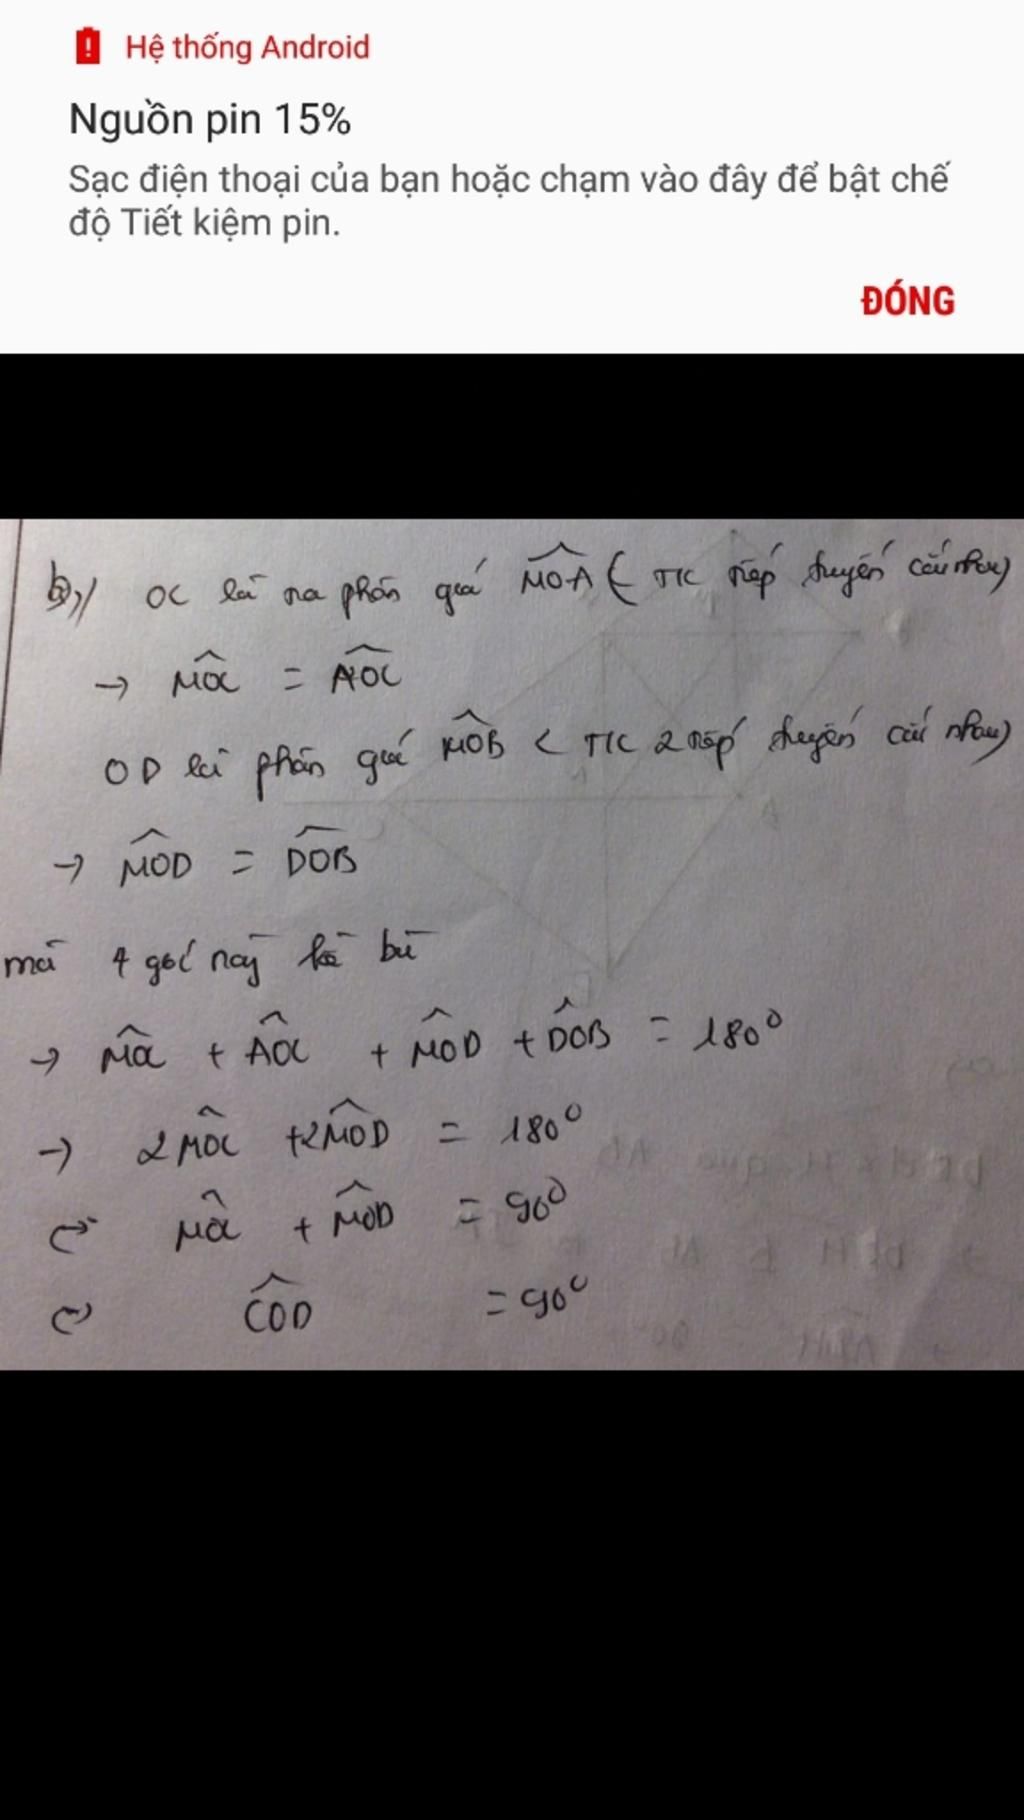 Hệ thống Android
Nguồn pin 15%
Sạc điện thoại của bạn hoặc chạm vào đây để bật chế
độ Tiết kiệm pin.
ĐÓNG
b)/ OC là tia phân giác MOA ( T/C tiếp tuyến cắt nhau)
→ MOC = AOC
OD là phân giác MOB ( T/C 2 tiếp tuyến cắt nhau)
→ MOD = DOB
mà 4 góc này kề bù
→ MOC + AOC + MOD + DOB = 180°
→ 2 MOC + 2 MOD = 180°
MOC + MOD = 90°
COD = 90°